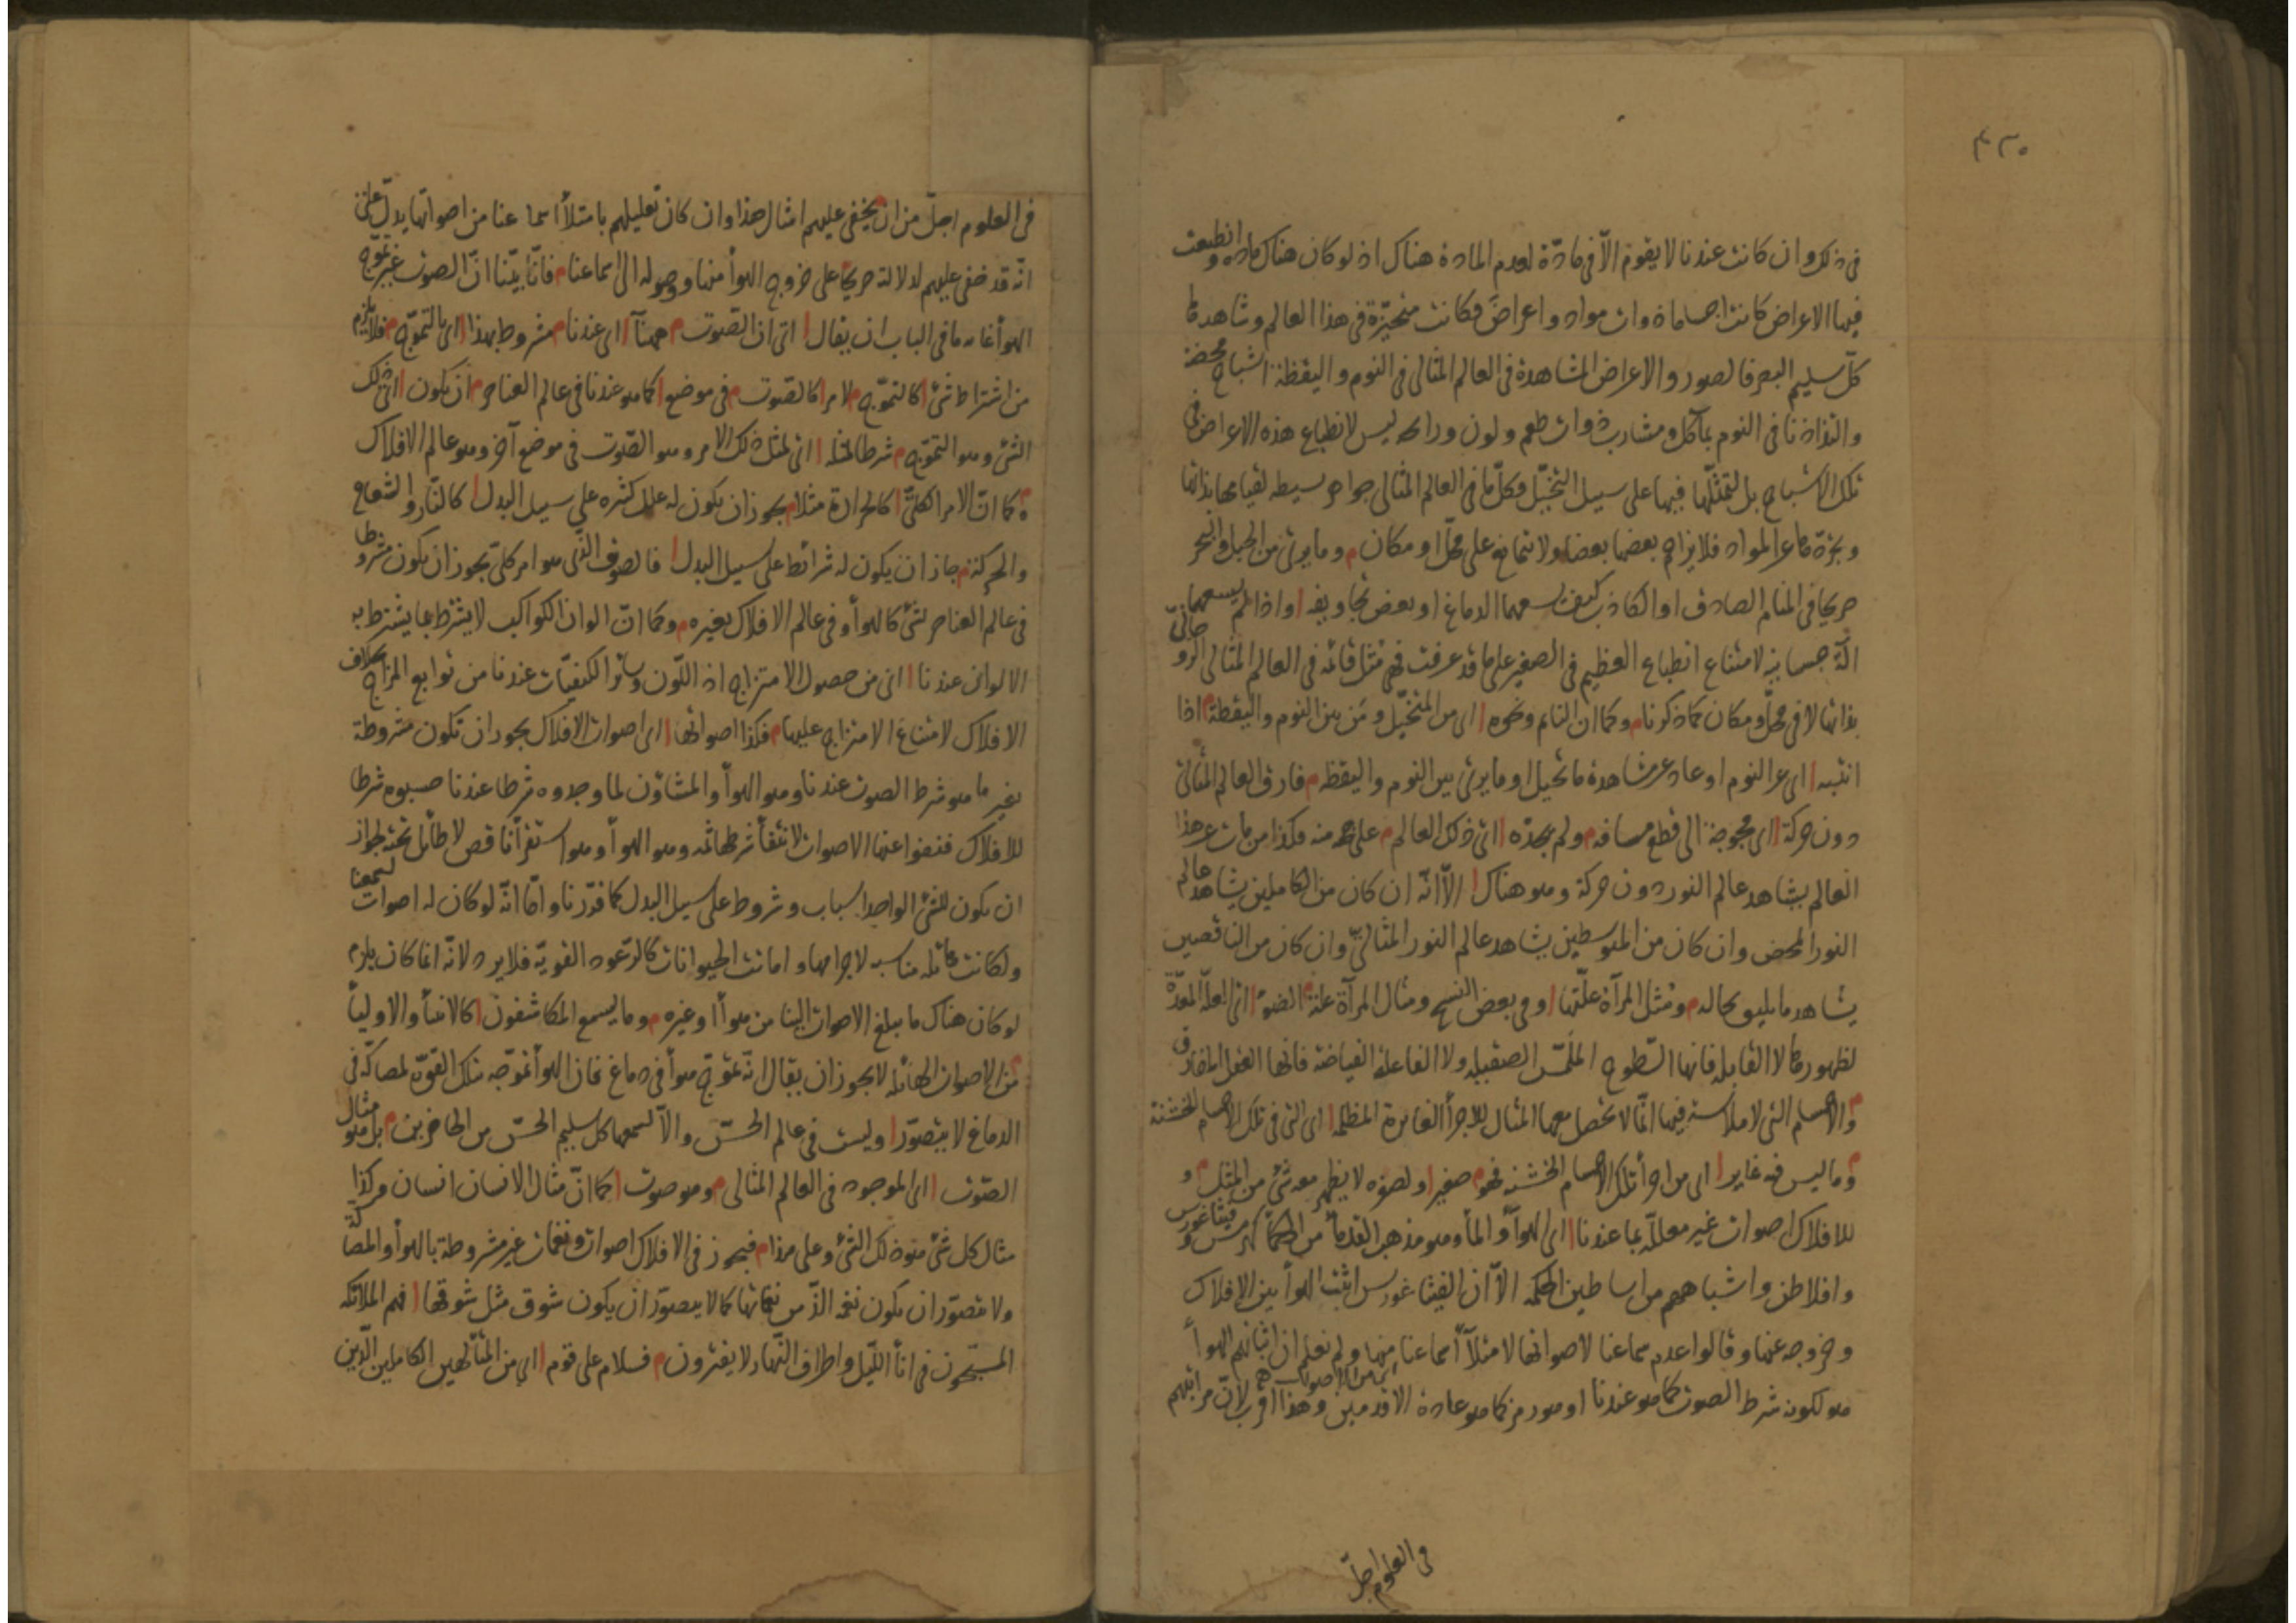 ٤٣٠
فى ذلك وان كانت عندنا لا يقوم الّا فى مادّة لعدم المادة هناك اذ لو كان هناك مادة وانطبعت
فيها الاعراض كانت اجساما ذوات مواد واعراض فكانت متحيّزة فى هذا العالم وشاهدها
كلّ سليم البصر فالصور والاعراض المشاهدة فى العالم المثالى فى النوم واليقظة اشباح محضة
والتذاذنا فى النوم بمآكل ومشارب ذوات طعم ولون ورائحه ليس لانطباع هذه الاعراض فى
تلك الاشباح بل لتمثّلها فيها على سبيل التخيّل فكلّ ما فى العالم المثالى جواهر بسيطه لقيامها بذاتها
وتجرّدها عن المواد فلا يزاحم بعضها بعضا ولا تتمانع على محلّ او مكان م وما يرى من الجبل والبحر
صريحا فى المنام الصادق او الكاذب كيف يسعهما الدماغ او بعض تجاويفه ا واذا لم يسعهما
آلة جسمانية لامتناع انطباع العظيم فى الصغير على ما قد عرفت فهى مثل قائمه فى العالم المثالى الروحانىّ
بذاتها لا فى محلّ ومكان كما ذكرنا م وكما ان النائم ونحوه ا اى من المتخيّل ومَن بين النوم واليقظة م اذا
انتبه ا اى عن النوم او عاد عن مشاهدة ما تخيل او ما يرى بين النوم واليقظه م فارق العالم المثالىّ
دون حركة ا اى محوجة الى قطع مسافه م ولم يجده ا اى ذلك العالم م على جهة منه فكذا من مات عن هذا
العالم يشاهد عالم النور دون حركة وهو هناك ا الّا انّه ان كان من الكاملين يشاهد عالم
النور المحض وان كان من المتوسطين يشاهد عالم النور المثالىّ وان كان من الناقصين
يشاهد ما يليق بحاله م ومثل المرآة علّتها ا وفى بعض النسخ ومثال المرآة علته م الضوء ا اى العلّة المعدّة
لظهورها لا القابله فانها السّطوح الملمس الصقيله ولا الفاعلة الفياضة فانها العقل المفارق
م والاجسام التى لا ملاسة فيها انّما لا تحصل معها المثال للاجزأ الغائرة المظلمه ا اى التى فى تلك الاجسام الخشنة
م وما ليس فيه غاير ا اى من اجزأ تلك الاجسام الخشنه فهو م صغير ا ولصغره لا يظهر معه شئ من المثل م و
للافلاك اصوات غير معللّة بما عندنا ا اى الهوأ والمأ وهو مذهب القدمأ من الحكمأ كهرمس وفيثاغورس
وافلاطن واشباههم من اساطين الحكمه الّا انّ الفيثاغورس اثبت الهوأ بين الافلاك
وخروجه عنها وقالوا عدم سماعنا لاصواتها لامتلأ أسماعنا منها ولم نعلم ان اثباتهم الهوأ
اىّ من الاصوات
هو لكونه شرط الصوت كما هو عندنا او هو رمز كما هو عادة الاقدمين وهذا اقرب لانّ مراتبهم
فى العلوم اجلّ
فى العلوم اجلّ من ان يخفى عليهم امثال هذا وان كان تعليلهم بامتلأ اسماعنا من اصواتها يدلّ على
انّه قد خفى عليهم لدلالته صريحا على خروج الهوأ منها ووصوله الى اسماعنا م فانّا بيّنا انّ الصوت غير تموّج
الهوأ غايه ما فى الباب ان يقال ا اى ان الصّوت م ههنآ ا اى عندنا م مشروط بهذا ا اى بالتموّج م فلا يلزم
من اشتراط شئ ا كالتموّج م لامر ا كالصّوت م فى موضع ا كما هو عندنا فى عالم العناصر م ان يكون ا اى ذلك
الشئ وهو التموّج م شرطا لمثله ا اى لمثل ذلك الامر وهو الصّوت فى موضع آخر وهو عالم الافلاك
م كما انّ الامر الكلىّ ا كالحرارة مثلا م يجوز ان يكون له علل كثيره على سبيل البدل ا كالنّار والشعاع
والحركة م جاز ان يكون له شرائط على سبيل البدل ا فالصوت الذى هو امر كلىّ يجوز ان يكون مشروطا
فى عالم العناصر لشئ كالهوأ وفى عالم الافلاك بغيره م وكما انّ الوان الكواكب لا يشترط بما يشترط به
الالوان عندنا ا اى من حصول الامتزاج اذ اللّون وسائر الكيفيّات عندنا من توابع المزاج بخلاف
الافلاك لامتناع الامتزاج عليها م فكذا اصواتها ا اى اصوات الافلاك يجوز ان تكون مشروطة
بغير ما هو شرط الصوت عندنا وهو الهوأ والمشاؤن لما وجدوه شرطا عندنا حسبوه شرطا
للافلاك فنفوا عنها الاصوات لانتفأ شرطها ثمه وهو الهوأ وهو استقرأ ناقص لا طائل تحته لجواز
ان يكون للشئ الواحد اسباب وشروط على سبيل البدل كما قدّرنا وامّا انّه لو كان له اصوات لسمعنا
ولكانت هائله مناسبه لاجرامها واماتت الحيوانات كالرّعود القويّة فلا يرد لانّه انما كان يلزم
لو كان هناك ما يبلغ الاصوات الينا من هوأ او غيره م وما يسمع المكاشفون ا كالانبيأ والاوليأ
م من الاصوات الهائله لا يجوز ان يقال انّه تموّج هوأ فى دماغ فان الهوأ تموّجه بتلك القوّة لمصاكّه فى
الدماغ لا يتصوّر ا وليست فى عالم الحسّ والّا لسمعها كل سليم الحسّ من الحاضرين م بل هو مثال
الصّوت ا اى الموجود فى العالم المثالى م وهو صوت ا كما انّ مثال الانسان انسان وكذا
مثال كل شئ هو ذلك الشئ وعلى هذا م فيجوز فى الافلاك اصوات ونغمات غير مشروطة بالهوأ والمصاكّة
ولا يتصوّر ان يكون نغمة الذّ من نغماتها كما لا يتصوّر ان يكون شوق مثل شوقها ا فهم الملائكه
المسبّحون فى انأ اللّيل واطراف النّهار لا يفترون م فسلام على قوم ا اى من المتألّهين الكاملين الّذين